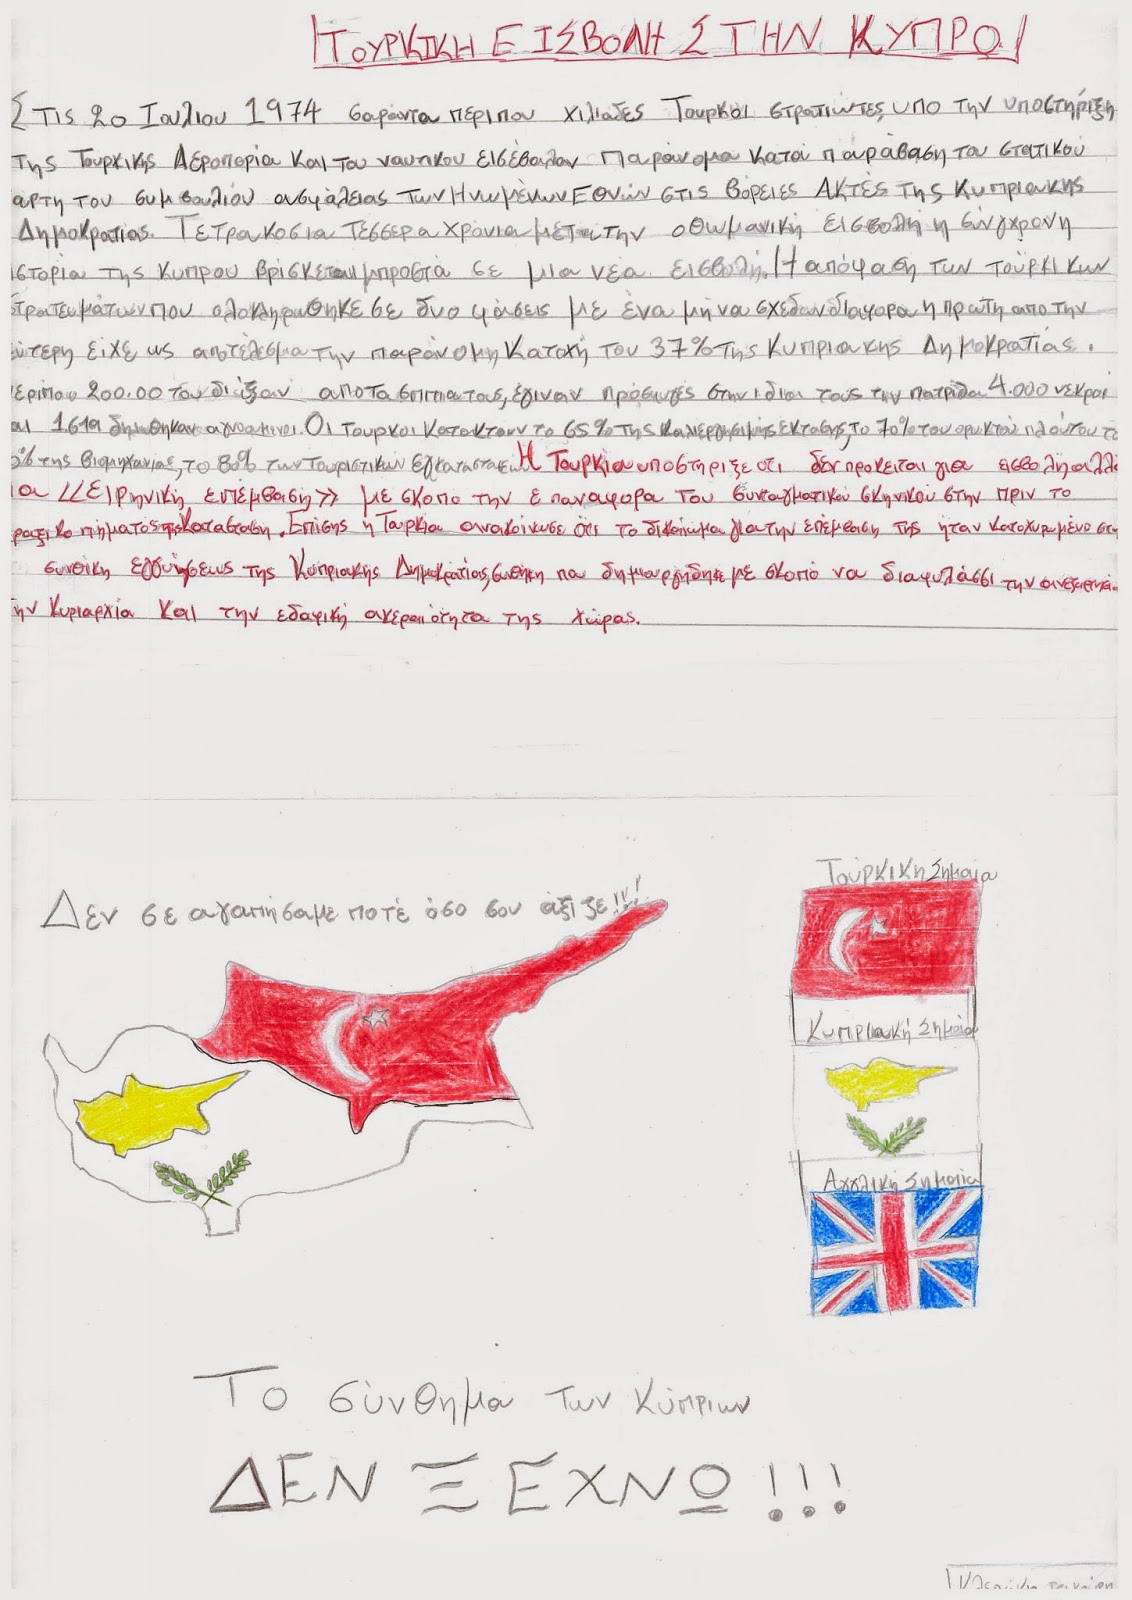 ΤΟΥΡΚΙΚΗ ΕΙΣΒΟΛΗ ΣΤΗΝ ΚΥΠΡΟ
Στις 20 Ιουλίου 1974 σαράντα περίπου χιλιάδες Τούρκοι στρατιώτες υπο την υποστήριξη
της Τουρκικής Αεροπορία και του ναυτικου εισέβαλαν παράνομα κατά παράβαση του στατικού
άρτη του συμβουλίου ασφάλειας των Ηνωμένων Εθνών στις βόρειες ΑΚΤΕς της Κυπριακης
Δημοκρατίας. Τετρακόσια τέσσερα χρόνια μετά την οθωμανική εισβολή η σύγχρονη
ιστορία της Κυπρου βρίσκεται μπροστά σε μια νέα εισβολή. Η απόφαση των τούρκικων
τρατευμάτων που ολοκληρωθηκε σε δυο φάσεις με ένα μήνα σχεδον διαφορα η πρώτη απο την
εύτερη είχε ως αποτέλεσμα την παράνομη Κατοχή του 37% της Κυπριακης Δημοκρατίας.
ερίπου 200.00 του διώξαν απο τα σπιτια τους, έγιναν πρόσφυγές στην ιδια τους την πατρίδα 4.000 νεκροί
αι 1.619 δηλωθηκαν αγνοουμενοι. Οι Τουρκοι Κατακτουν το 65% της καλιεργησιμης έκτασης, το 70% του ορυκτού πλούτου το
% της βιομηχανίας, το 80% των τουριστικών εγκαταστάσεων Η Τουρκία υποστηριξε οτι δεν προκειται για εισβολή αλλά
ια <<Ειρηνική επέμβαση>> με σκοπο την επαναφορα του συνταγματικού σκηνικού στην πριν το
ραξικοπήματος της Κατασταση. Επίσης η Τουρκία ανακοίνωσε ότι το δικαίωμα για την επέμβαση της ήταν κατοχυρωμένο στη
συνθήκη εγγυήσεως της Κυπριακης Δημοκρατίας, συνθήκη που δημιουργήθηκε με σκοπό να διαφυλάσσι την ανεξαρτησία
ην Κυριαρχία και την εδαφική ακεραιότητα της χώρας.
Δεν σε αγαπήσαμε ποτέ όσο σου άξιζε!!!
Τούρκικη Σημαία
Κυπριακή Σημαία
Αγγλική Σημαία
Το σύνθημα των Κύπριων
ΔΕΝ ΞΕΧΝΩ!!!